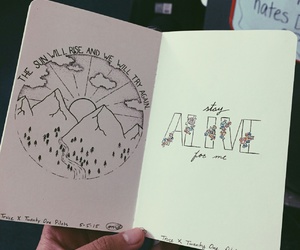 THE SUN WILL RISE AND WE WILL TRY AGAIN
Truce X Twenty One Pilots
5-5-15
stay
ALIVE
for me
Truce X Twenty One Pilots